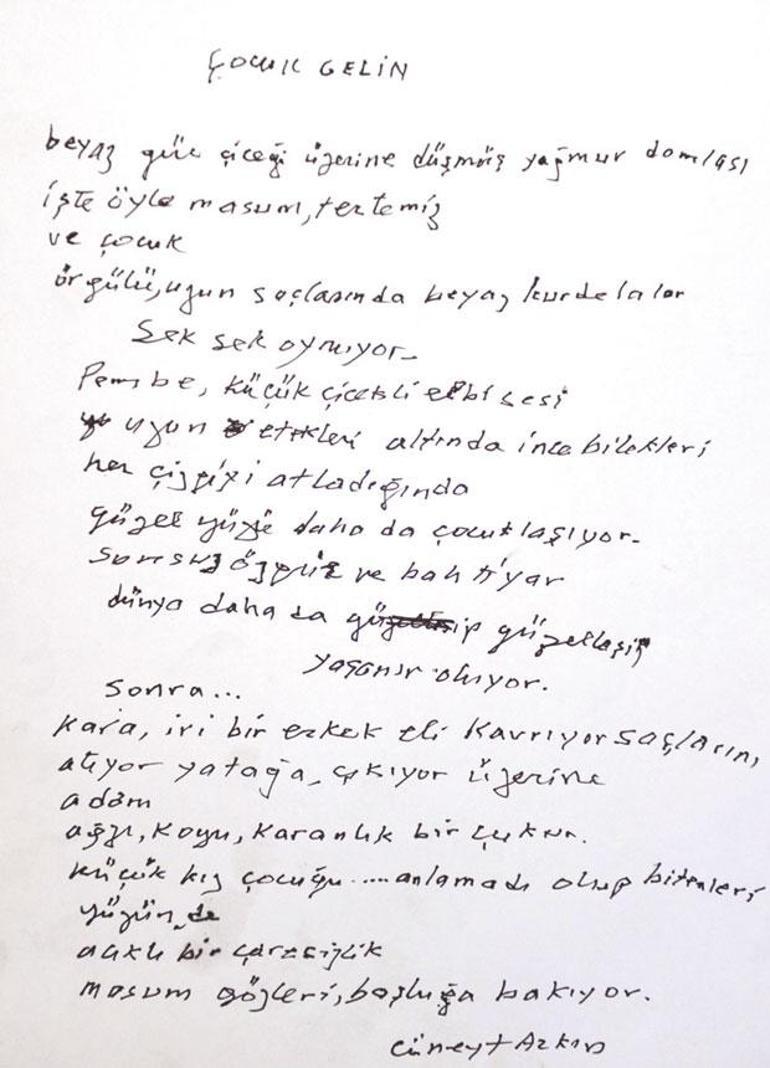 ÇOCUK GELİN
beyaz gül çiçeği üzerine düşmüş yağmur domlası
işte öyle masum, tertemiz
ve çocuk
örgülü, uzun saçlarında beyaz kurdelalar
Sek sek oynuyor.
Pembe, küçük çiçekli elbisesi
uzun etekleri altında ince bilekleri
her çizgiyi atladığında
güzel yüzü daha da çocuklaşıyor.
sonsuz özgür ve bahtiyar
dünya daha da güzelleşip
yaşanır oluyor.
sonra...
Kara, iri bir erkek eli Kavrıyor saçlarını,
atıyor yatağa, çıkıyor üzerine
adam
ağzı, koyu, karanlık bir çukur.
küçük kız çocuğu .... anlamadı olup bitenleri
yüzünde
acıklı bir çaresizlik
masum gözleri, boşluğa bakıyor.
Cüneyt Arkın